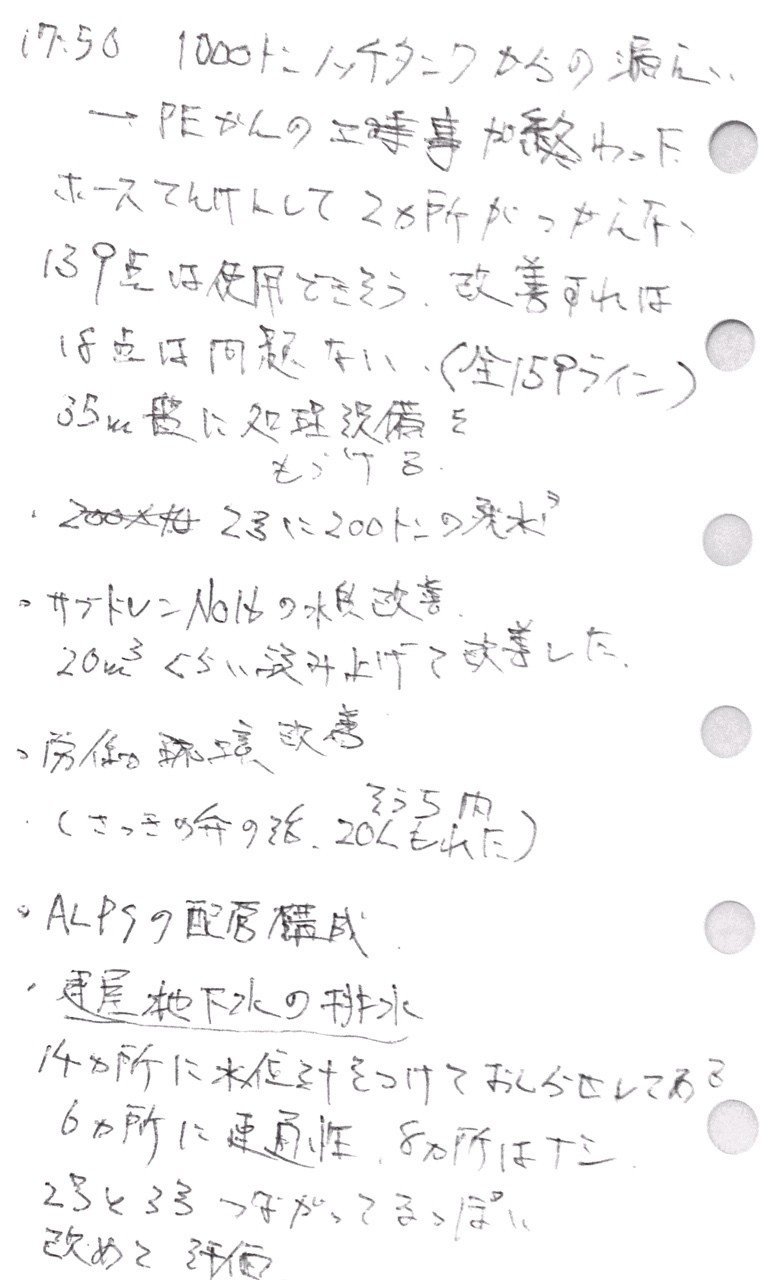 17:50 1000トンノッチタンクからの漏えい
→ PEかんの工事が終わった
ホースてんけんして2カ所がつかえない
139点は使用できそう、改善すれば
18点は問題ない、(全159ライン)
35m盤に処理設備を
もうける.
・2号に200トンの廃水
・サブドレンNo18の水質改善.
20m³くらい汲み上げて改善した.
・労働環境改善
・(さっきの弁の話、20L もれた)
そうち内
・ALPSの配管構成
・建屋地下水の排水
14カ所に水位計をつけておしらせしてある
6カ所に連通性、8カ所はナシ.
2号と3号つながってるっぽい
改めて評価